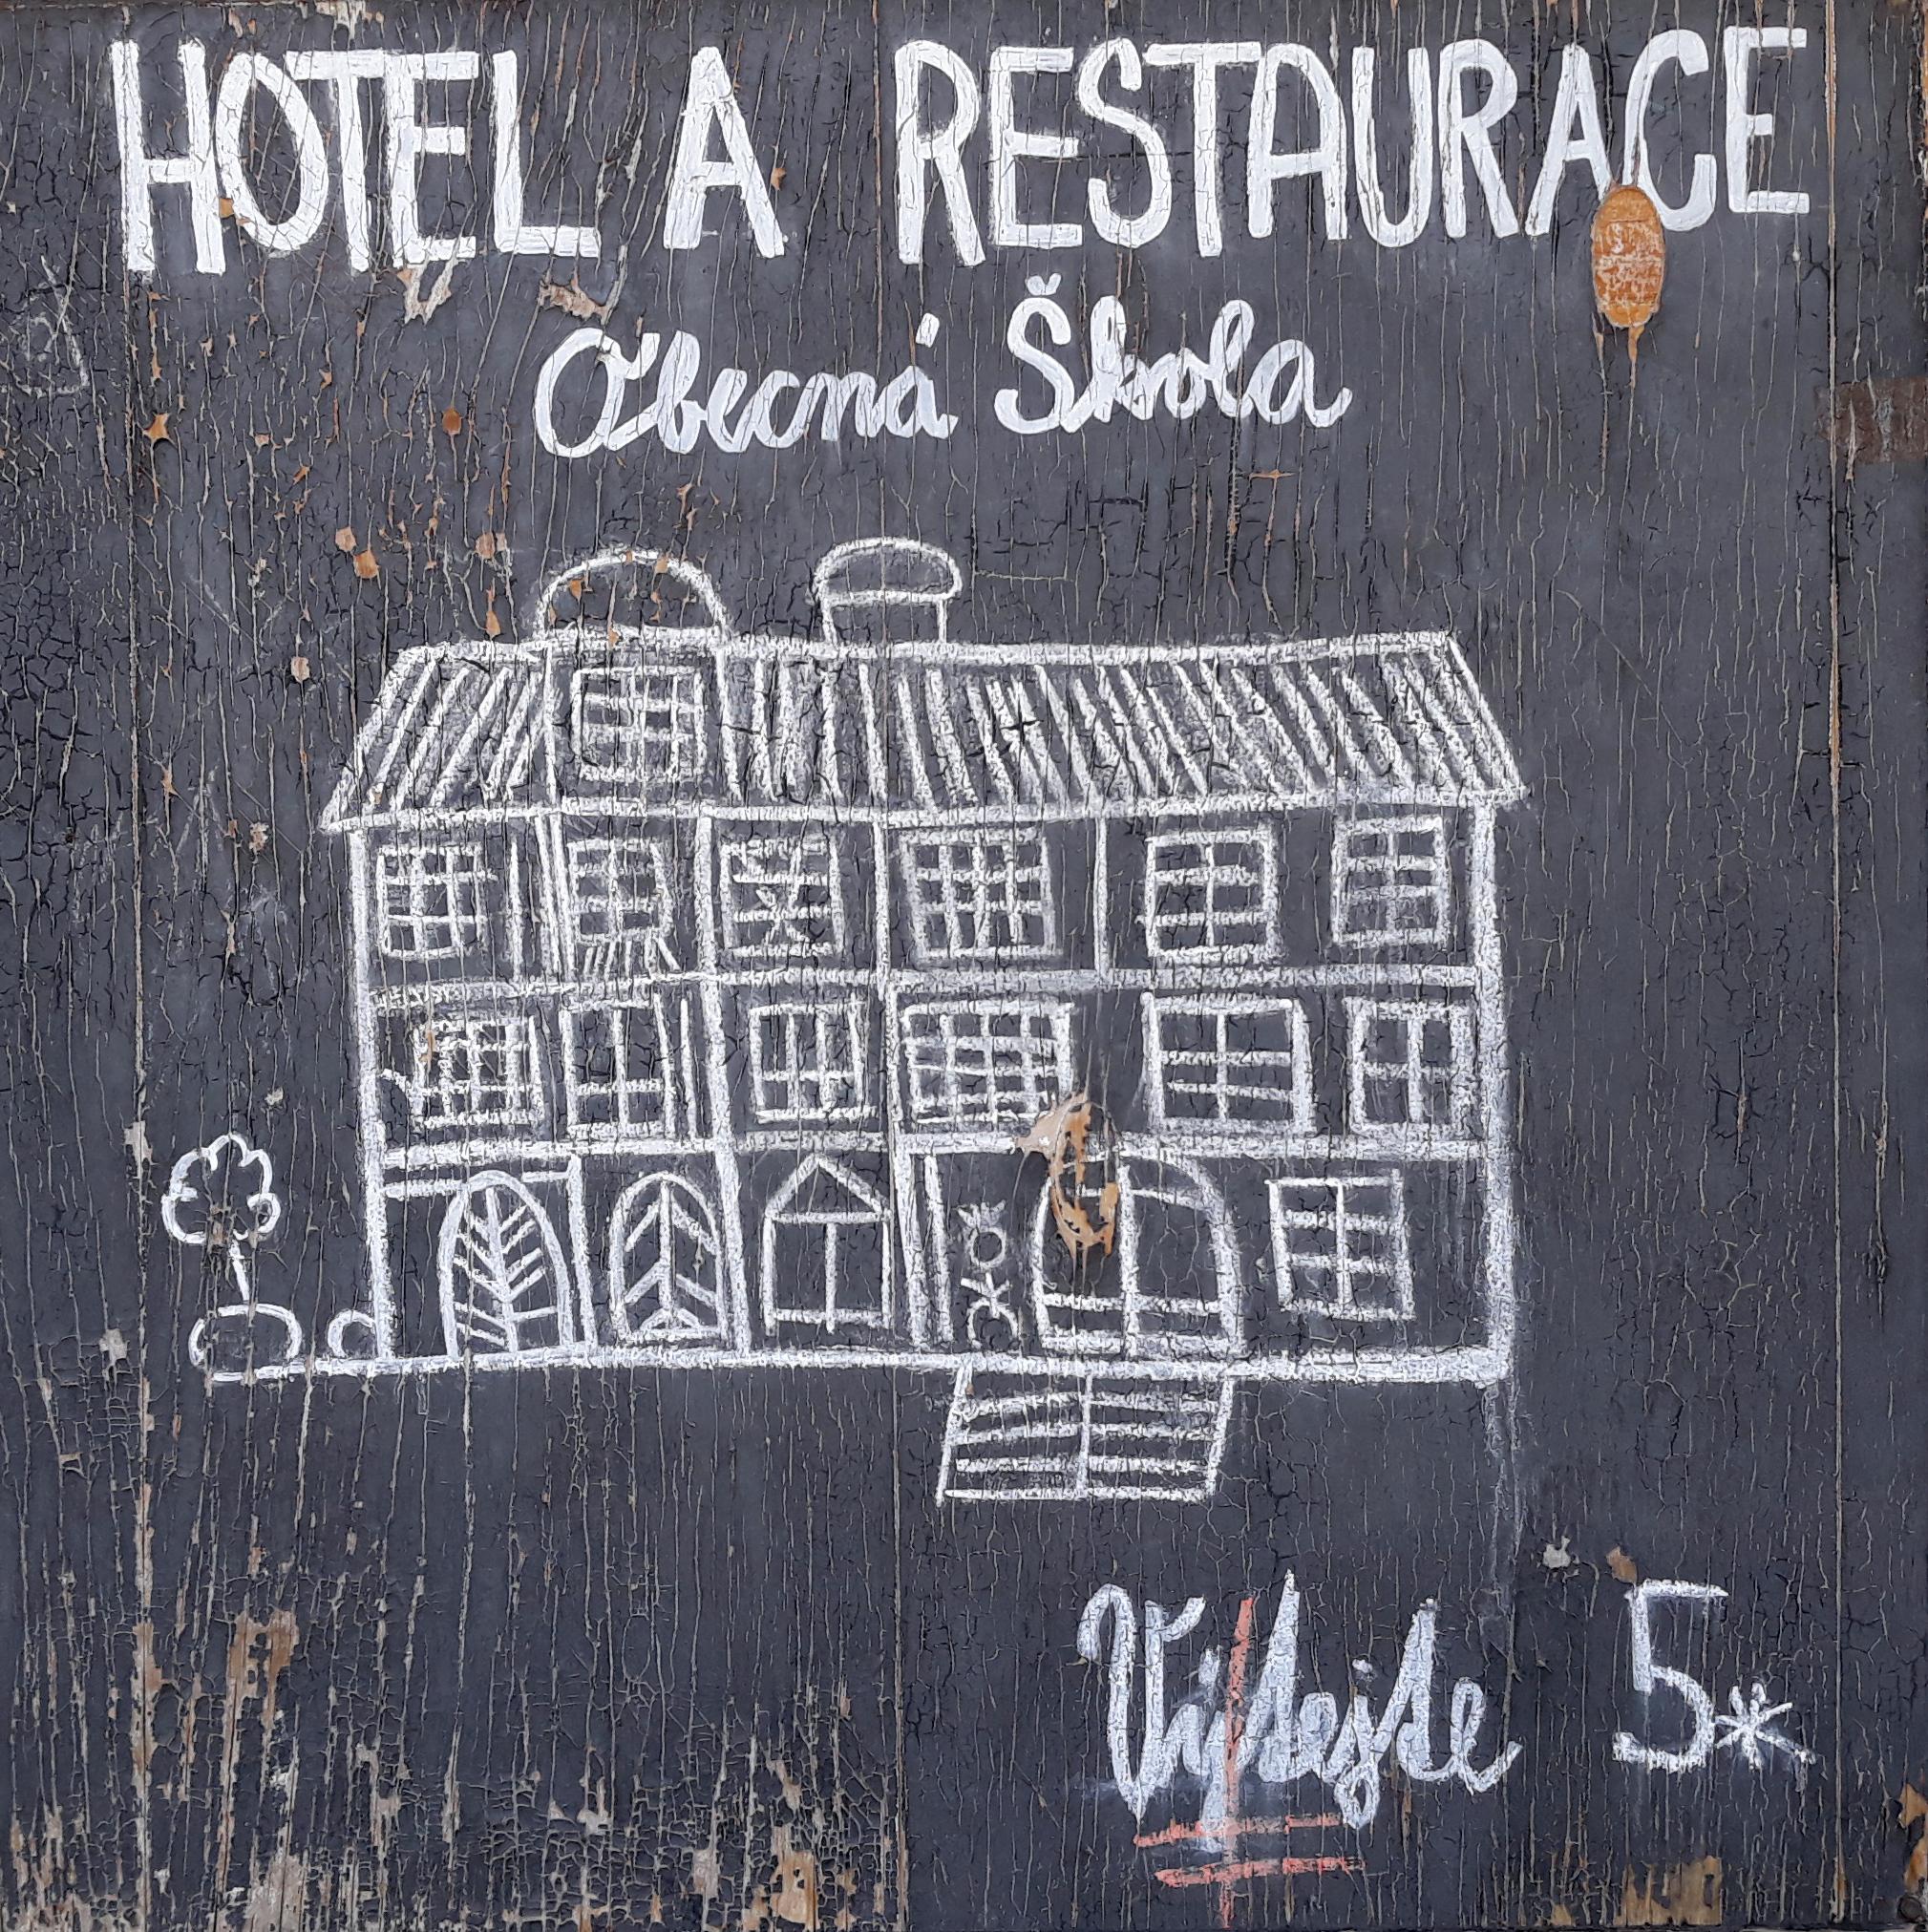 HOTEL A RESTAURACE
Obecná Škola
Výtejte 5*